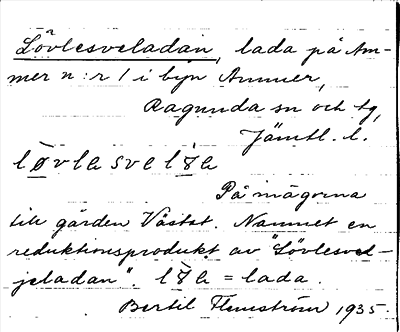 Lövlesveladan, lada på Am-
mer n:r 1 i byn Ammer,
Ragunda sn och tg,
Jämtl. l.
På mägorna
till gården Västst. Namnet en
reduktionsprodukt av "Lövlesvel-
jeladan". = lada.
Bertil Flemström 1935.